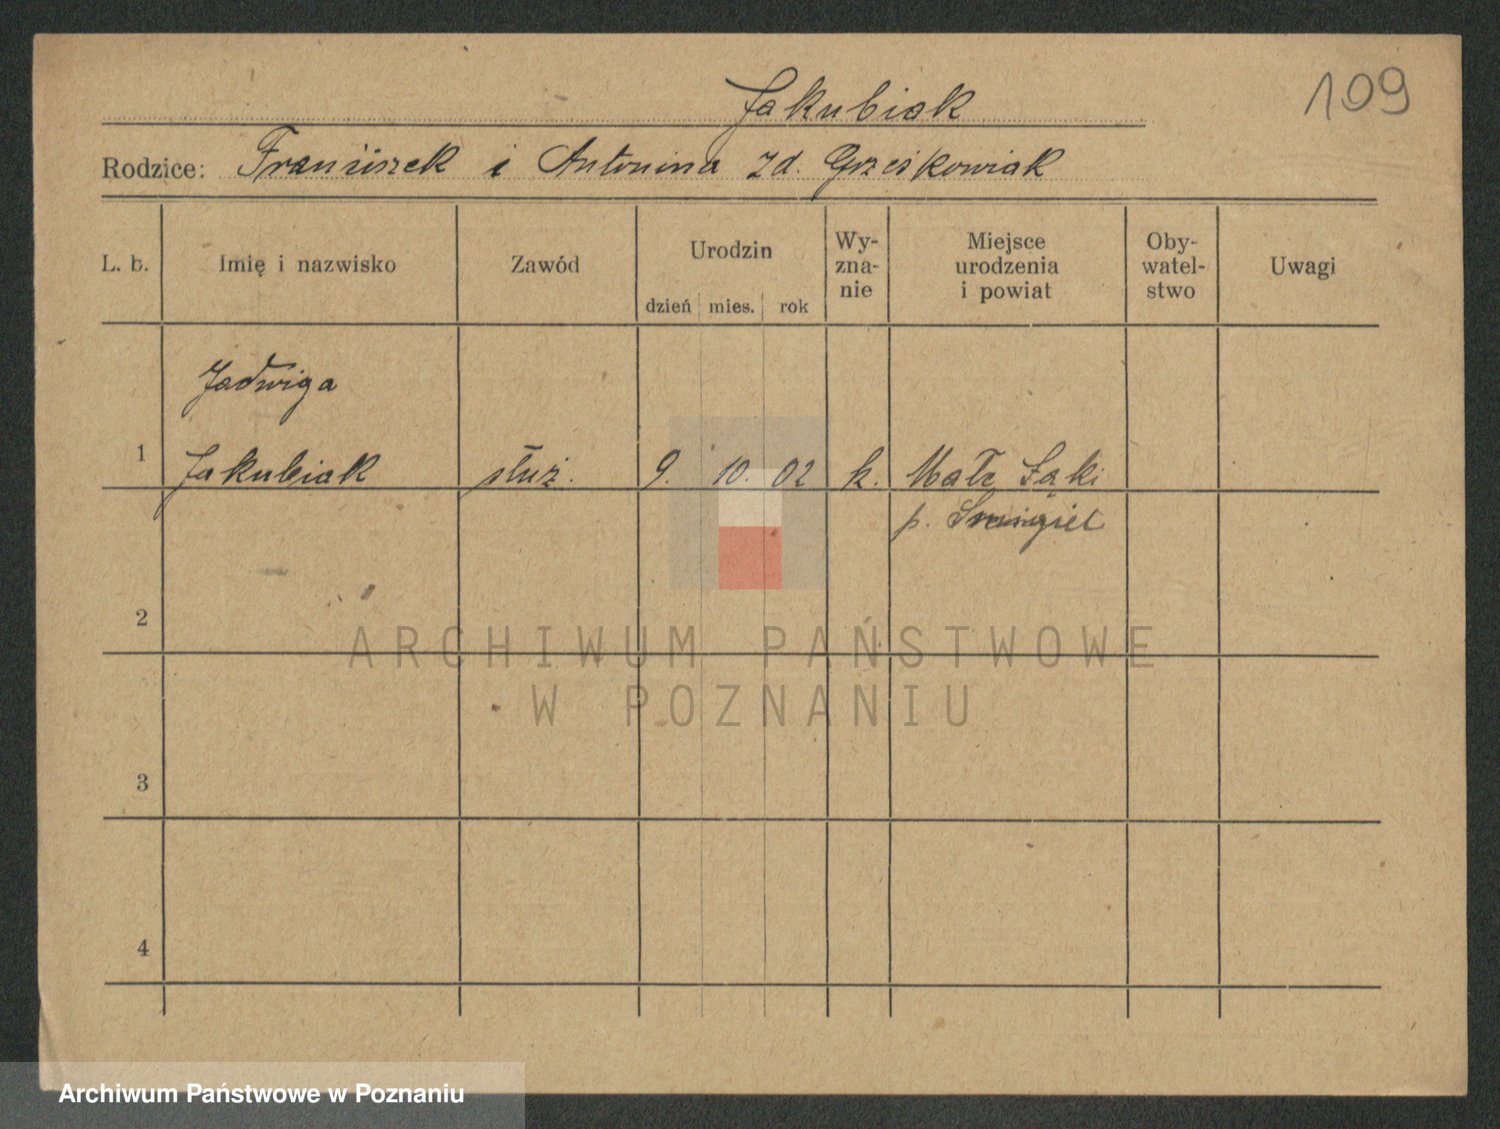 109
Jakubiak
Rodzice: Franciszek i Antonina zd. Grześkowiak
L. b. Imię i nazwisko Zawód Urodzin dzień mies. rok Wy-zna-nie Miejsce urodzenia i powiat Oby-watel-stwo Uwagi
Jadwiga
1 Jakubiak służ. 9. 10. 02 k. Małe Łąki
p. Śmigiel
2
ARCHIWUM PAŃSTWOWE
W POZNANIU
3
4
Archiwum Państwowe w Poznaniu